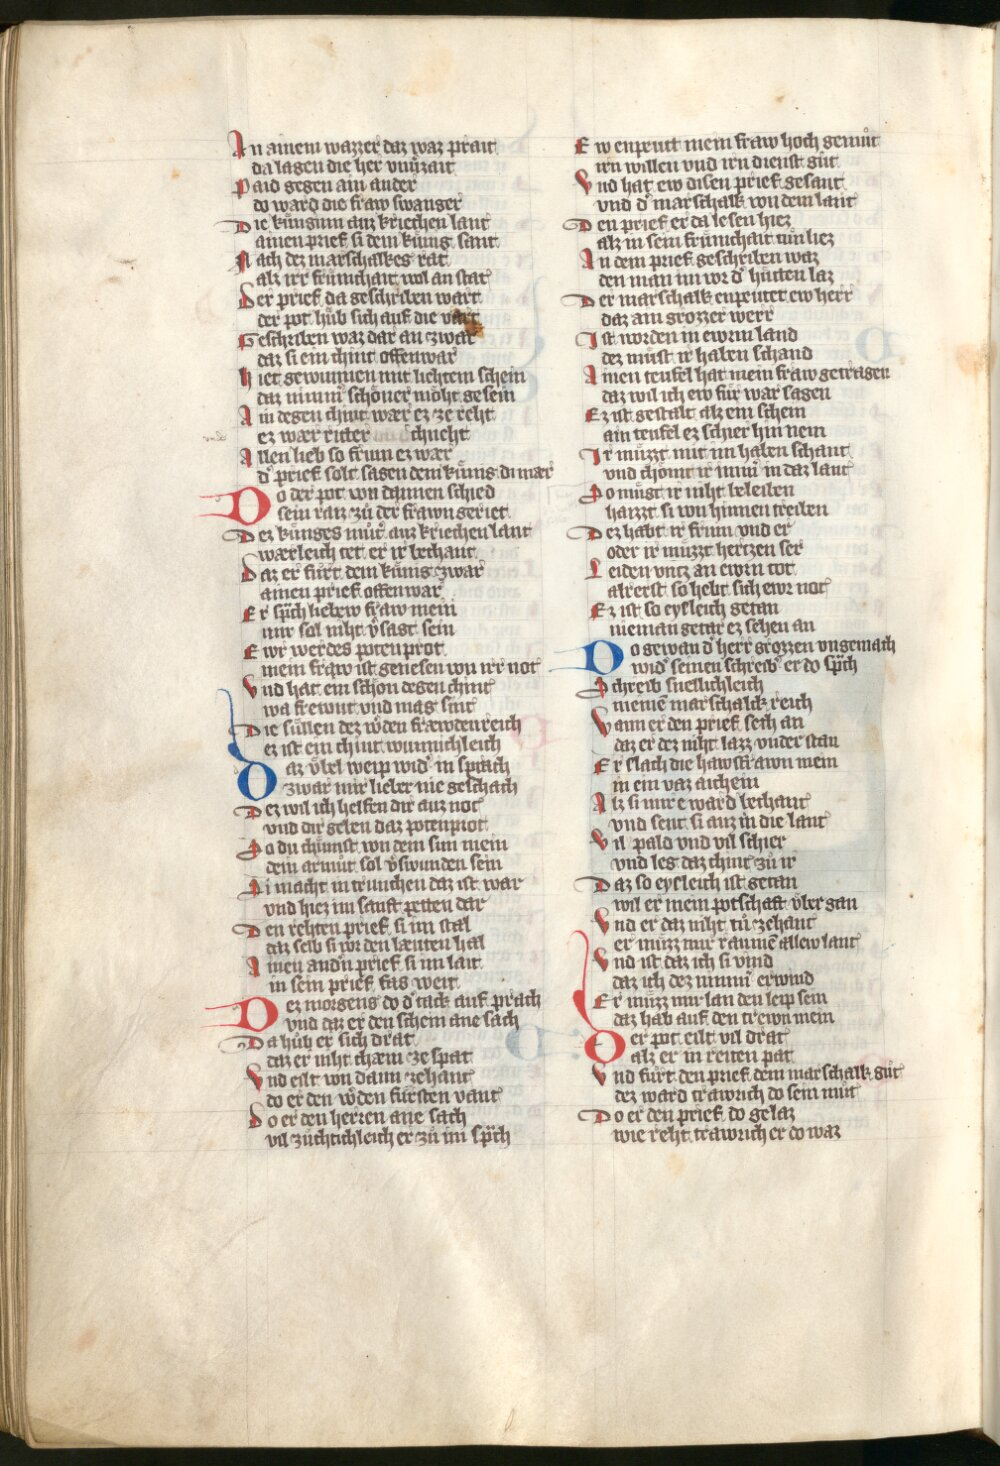 An ainem wazzer daz waz prait
da lagen die her vnuͤrzait
Paid gegen ain ander
do ward die fraw swanger
Die kuͤngiin auz kriechen lant
ainen prief si dem kuͤnig sant
Nach dez marschalkes rat
alz irr frúmchait wol an stat
Der prief da geschriben wart
der pot huͦb sich auf die vart
Geschriben waz dar an zwar
daz si ein chint offenwar
Hiet gewunnen mit liehtem schein
daz nimm̄ schoner moht gesein
Ain degen chint wær ez ze reht
ez wær ritter chneht
Allen lieb so frum ez wær
d' prief solt sagen dem kuͤnig di mær
Do der pot von dannen schied
sein raiz zuͦ der frawn geriet
Dez kúnges muͦt' auz kriechen lant
wærleich tet er ir bechant
Daz er fuͤrt dem kuͤnig zwar
ainen prief offenwar
Er sp̄ch liebew fraw mein
mir sol niht v̄sagt sein
Ewr werdes potenprot
mein fraw ist genesen von irr not
Vnd hat ein schon degen chint
wa frewnt vnd mag sint
Die suͤllen dez w'den frawden reich
ez ist ein chint wunnichleich
Daz vbel weip wid' in sprach
zwar mir lieber nie geschach
Dez wil ich helfen dir auz not
vnd dir geben daz potenprot
So du chumst von dem sun mein
dein armuͦt sol v̄swunden sein
Si macht in trunchen daz ist war
vnd hiez im sanft petten dar
Den rehten prief si im stal
daz selb si vor den læuten hal
Ainen and'n prief si im lait
in sein prief fas weit
Dez morgens do d' tack auf prach
vnd daz er den schein ane sach
Da huͦb er sich drat
daz er niht chæm ze spat
Vnd eilt von dann zehant
do er den w'den fuͤrsten vant
Do er den herren ane sach
vil zuͤchtichleich er zuͦ im sp̄ch
Ew enpeutt mein fraw hoch gemuͦt
irn willen vnd irn dienst guͦt
Vnd hat ew disen prief gesant
vnd d' marschalk von dem lant
Den prief er da lesen hiez
alz in sein frúmchait niht liez
An dem prief geschriben waz
den man im vor d' huͤtten laz
Der marschalk enpeutet ew herr
daz ain grozzer werr
Ist worden in ewrm land
dez muͤst ir haben schand
Ainen teufel hat mein fraw getragen
daz wil ich ew fuͤr war sagen
Ez ist gestalt alz ein schem
ain teufel ez schier hin nem
Ir muͤzzt mit im haben schant
vnd choͤmt ir nimm̄ in daz lant
So muͤgt ir niht beleiben
haizzt si von hinnen treiben
Dez habt ir frum vnd er
oder ir muͤzzt hertzen ser
Leiden vntz an ewrn tot
alrerst so hebt sich ewr not
Ez ist so eysleich getan
nieman getar ez sehen an
Do gewan d' herr grozzen vngemach
wid' seinen schreib' er do sp̄ch
Schreib sneslichleich
meinē marschalck reich
Wann er den prief sech an
daz er dez niht lazz vnder stan
Er slach die hawsfrawn mein
in ein vaz aichein
Alz si mir e ward bechant
vnd sent si auz in die lant
Vil pald vnd vil schier
vnd leg daz chint zuͦ ir
Daz so eysleich ist getan
wil er mein potschaft vber gan
Vnd er daz niht tuͦ zehant
er muͤzz mir raumē allew lant
Vnd ist daz ich si vind
daz ich dez nimm̄ erwind
Er muͤzz mir lan den leip sein
daz hab auf den trewn mein
Der pot eilt vil drat
alz er in reiten pat
Vnd fuͤrt den prief dem marschalk guͦt
dez ward trawrich do sein muͦt
Do er den prief do gelaz
wie reht trawrich er do waz